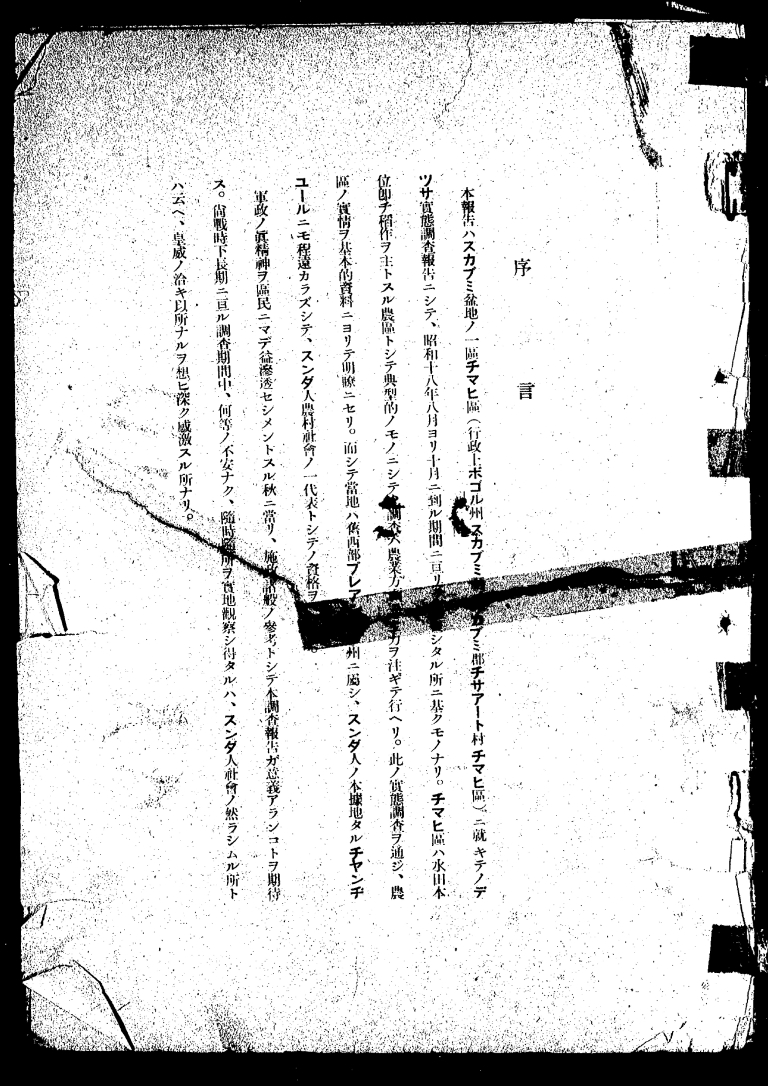 序言
本報告ハスカブミ盆地ノ一區チマヒ區（行政上ボゴル州スカブミ カブミ郡チサアート村チマヒ區）ニ就キテノデ
ツサ實態調査報告ニシテ、昭和十八年八月ヨリ十月ニ到ル期間ニ亘リ シタル所ニ基クモノナリ。チマヒ區ハ水田本
位卽チ稻作ヲ主トスル農區トシテ典型的ノモノニシテ 調査ハ農業方 力ヲ注ギテ行ヘリ。此ノ實態調査ヲ通ジ、農
區ノ實情ヲ基本的資料ニヨリテ明瞭ニセリ。而シテ當地ハ舊西部プレア 州ニ屬シ、スンダ人ノ本據地タルチヤンヂ
ユールニモ程遠カラズシテ、スンダ人農村社會ノ一代表トシテノ資格ヲ
軍政ノ眞精神ヲ區民ニマデ益滲透セシメントスル秋ニ當リ、施政諸般ノ參考トシテ本調査報告ガ意義アランコトヲ期待
ス。尙戰時下長期ニ亘ル調査期間中、何等ノ不安ナク、隨時隨所ヲ實地觀察シ得タルハ、スンダ人社會ノ然ラシムル所ト
ハ云ヘ、皇威ノ洽キ以所ナルヲ想ヒ深ク感激スル所ナリ。